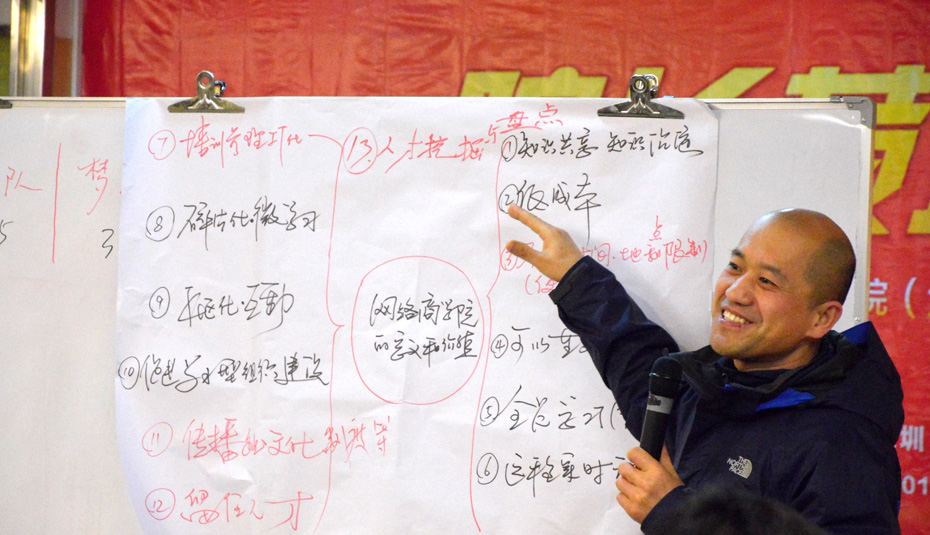 ⑦ 培训管理E化
⑧ 碎片化微学习
⑨ 互动
⑩ 促进学习型组织建设
⑪ 传播企业文化 制度等
⑫ 留住人才
⑬ 人才挖掘 盘点
网络商学院
的意义和价值
① 知识共享 知识沉淀
② 低成本
点
③ 时间、地点限制
④ 可以
⑤ 全员学习
⑥ 远程实时
队
梦
5
3
院（
圳
01
THE
NORTH
FACE